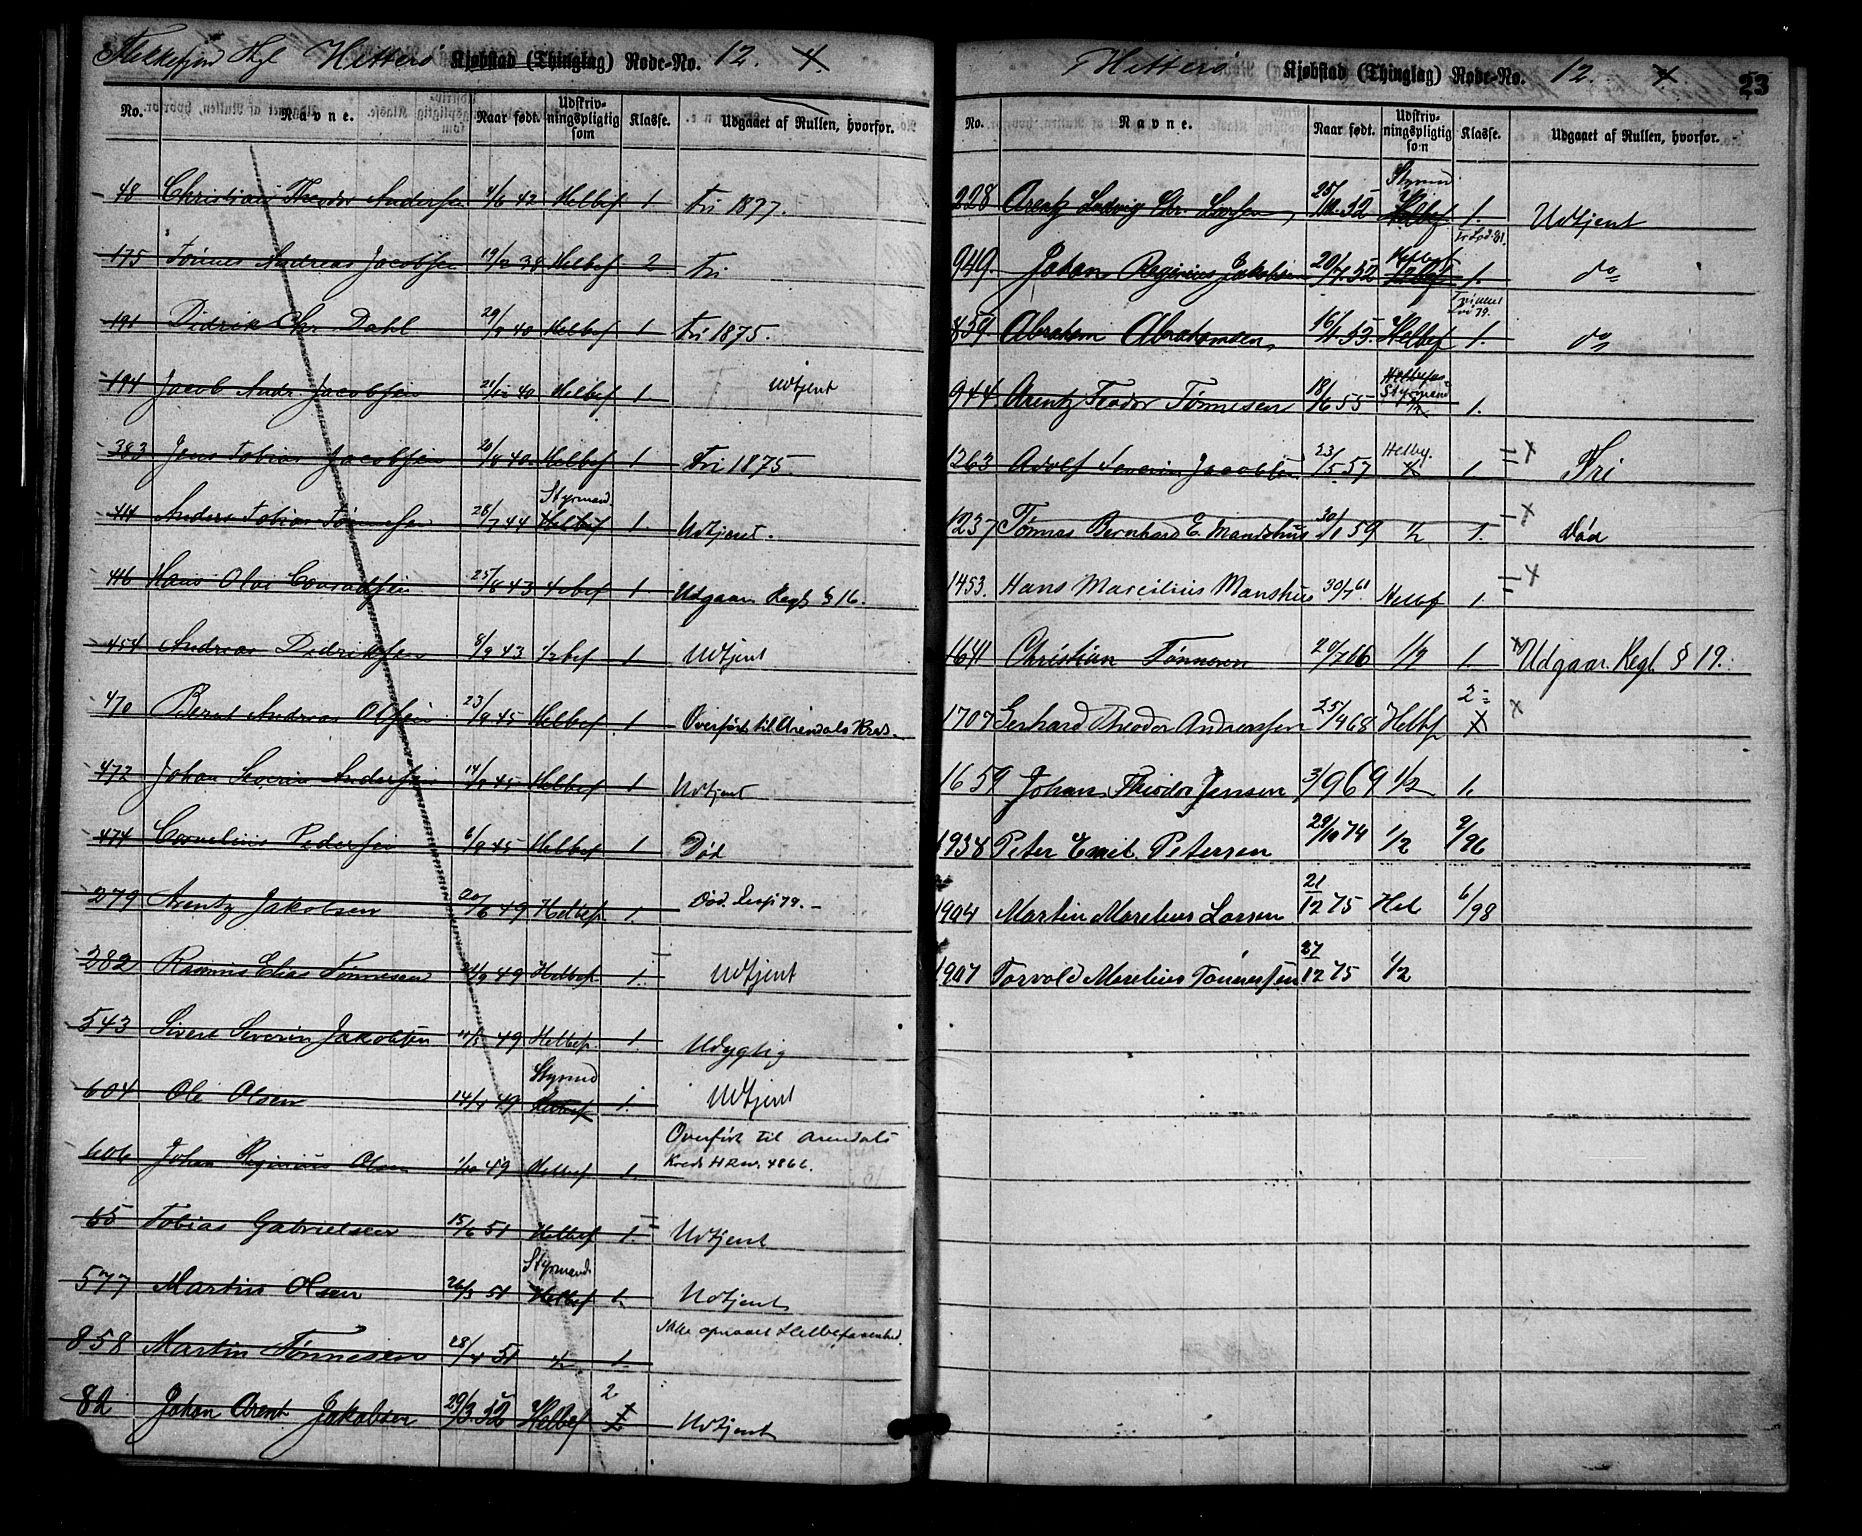 Hitterø Kjøbstad (Thinglag) Rode-No. 12. 4.
No. Navne. Naar født. Udskriv-ningspligtig som Klasse. Udgaaet af Rullen, hvorfor.
48 Christian Theodor Andersen 4/6 42 Helbef 1 Fri 1877.
175 Tønnes Andreas Jacobsen 38 Helbef 2 Fri
191 Didrik Chr. Dahl 40 Helbef 1 Fri 1875.
194 Jacob Andr. Jacobsen 40 Helbef 1 Udtjent
383 Jens Tobias Jacobsen 20/8 40 Helbef 1 Fri 1875.
414 Anders Tobias Tønnesen 28/7 44 Styrmand Helbef 1. Udtjent.
416 Hans Olai Conradsen 25/8 43 1 Udgaar Regl § 16.
454 Andreas Didriksen 8/9 43 1/2 bef 1. Udtjent
470 Bernt Andreas Olsen 23/9 45 Helbef 1 Overført til Arendals Kreds.
472 Johan Severin Andersen 45 Helbef 1 Udtjent
474 Cornelius Pedersen 6/9 45 Helbef 1. Død
279 Arentz Jakobsen 49 Helbef 1. Død
282 Rasmus Elias Tønnesen 49 Helbef 1. Udtjent
543 Sivert Severin Jakobsen 49 Helbef 1. Udygtig
604 Ole Olsen 49 Styrmd Helbef 1. Udtjent
606 Johan Reginius Olsen 1/10 49 Helbef 1. Overført til Arendals Kreds 4866.
65 Tobias Gabrielsen 15/6 51 Helbef 1. Udtjent
577 Martin Olsen 26/3 51 Styrmand Helbef 1. Udtjent
858 Martin Tønnesen 28/4 51 1/2 1. Ikke opnaaet Helbefarenhed.
82 Johan Arent Jakobsen 29/3 52 Helbef 2 Udtjent
Hitterø Kjøbstad (Thinglag) Rode-No. 12. 4. 23
No. Navne. Naar født. Udskriv-ningspligtig som Klasse. Udgaaet af Rullen, hvorfor.
228 Arentz Ludvig Chr. Larsen 25/10 52 Styrmd Helbef 1. Udtjent
949. Johan Reginius Jakobsen 20/7 52 1. do
859 Abraham Abrahamsen 16/11 53. Helbef 1. do
944 Arentz Teodor Tønnesen 18/6 55 Styrmand 1/2 1.
1263 Adolf Severin Jacobsen 23/5 57 Helbef. 1. Fri
1237 Tønnes Bernhard E. Mandshus 30/1 59 1/2 1. Død
1453. Hans Marcilius Manshus 30/7 61 Helbef 1.
1641 Christian Tønnesen 66 1/2 1. Udgaar Regl. § 19.
1707 Gerhard Theodor Andreassen 25/9 68 Helbf 2
1659 Johan Theodor Jensen 3/9 69 1/2 1.
1938 Peter Emil Petersen 29/10 74 1/2 9/96
1904 Martin Marelius Larsen 21/12 75 Hel 6/98
1907 Torvald Marelius Tønnessen 27/12 75 1/2